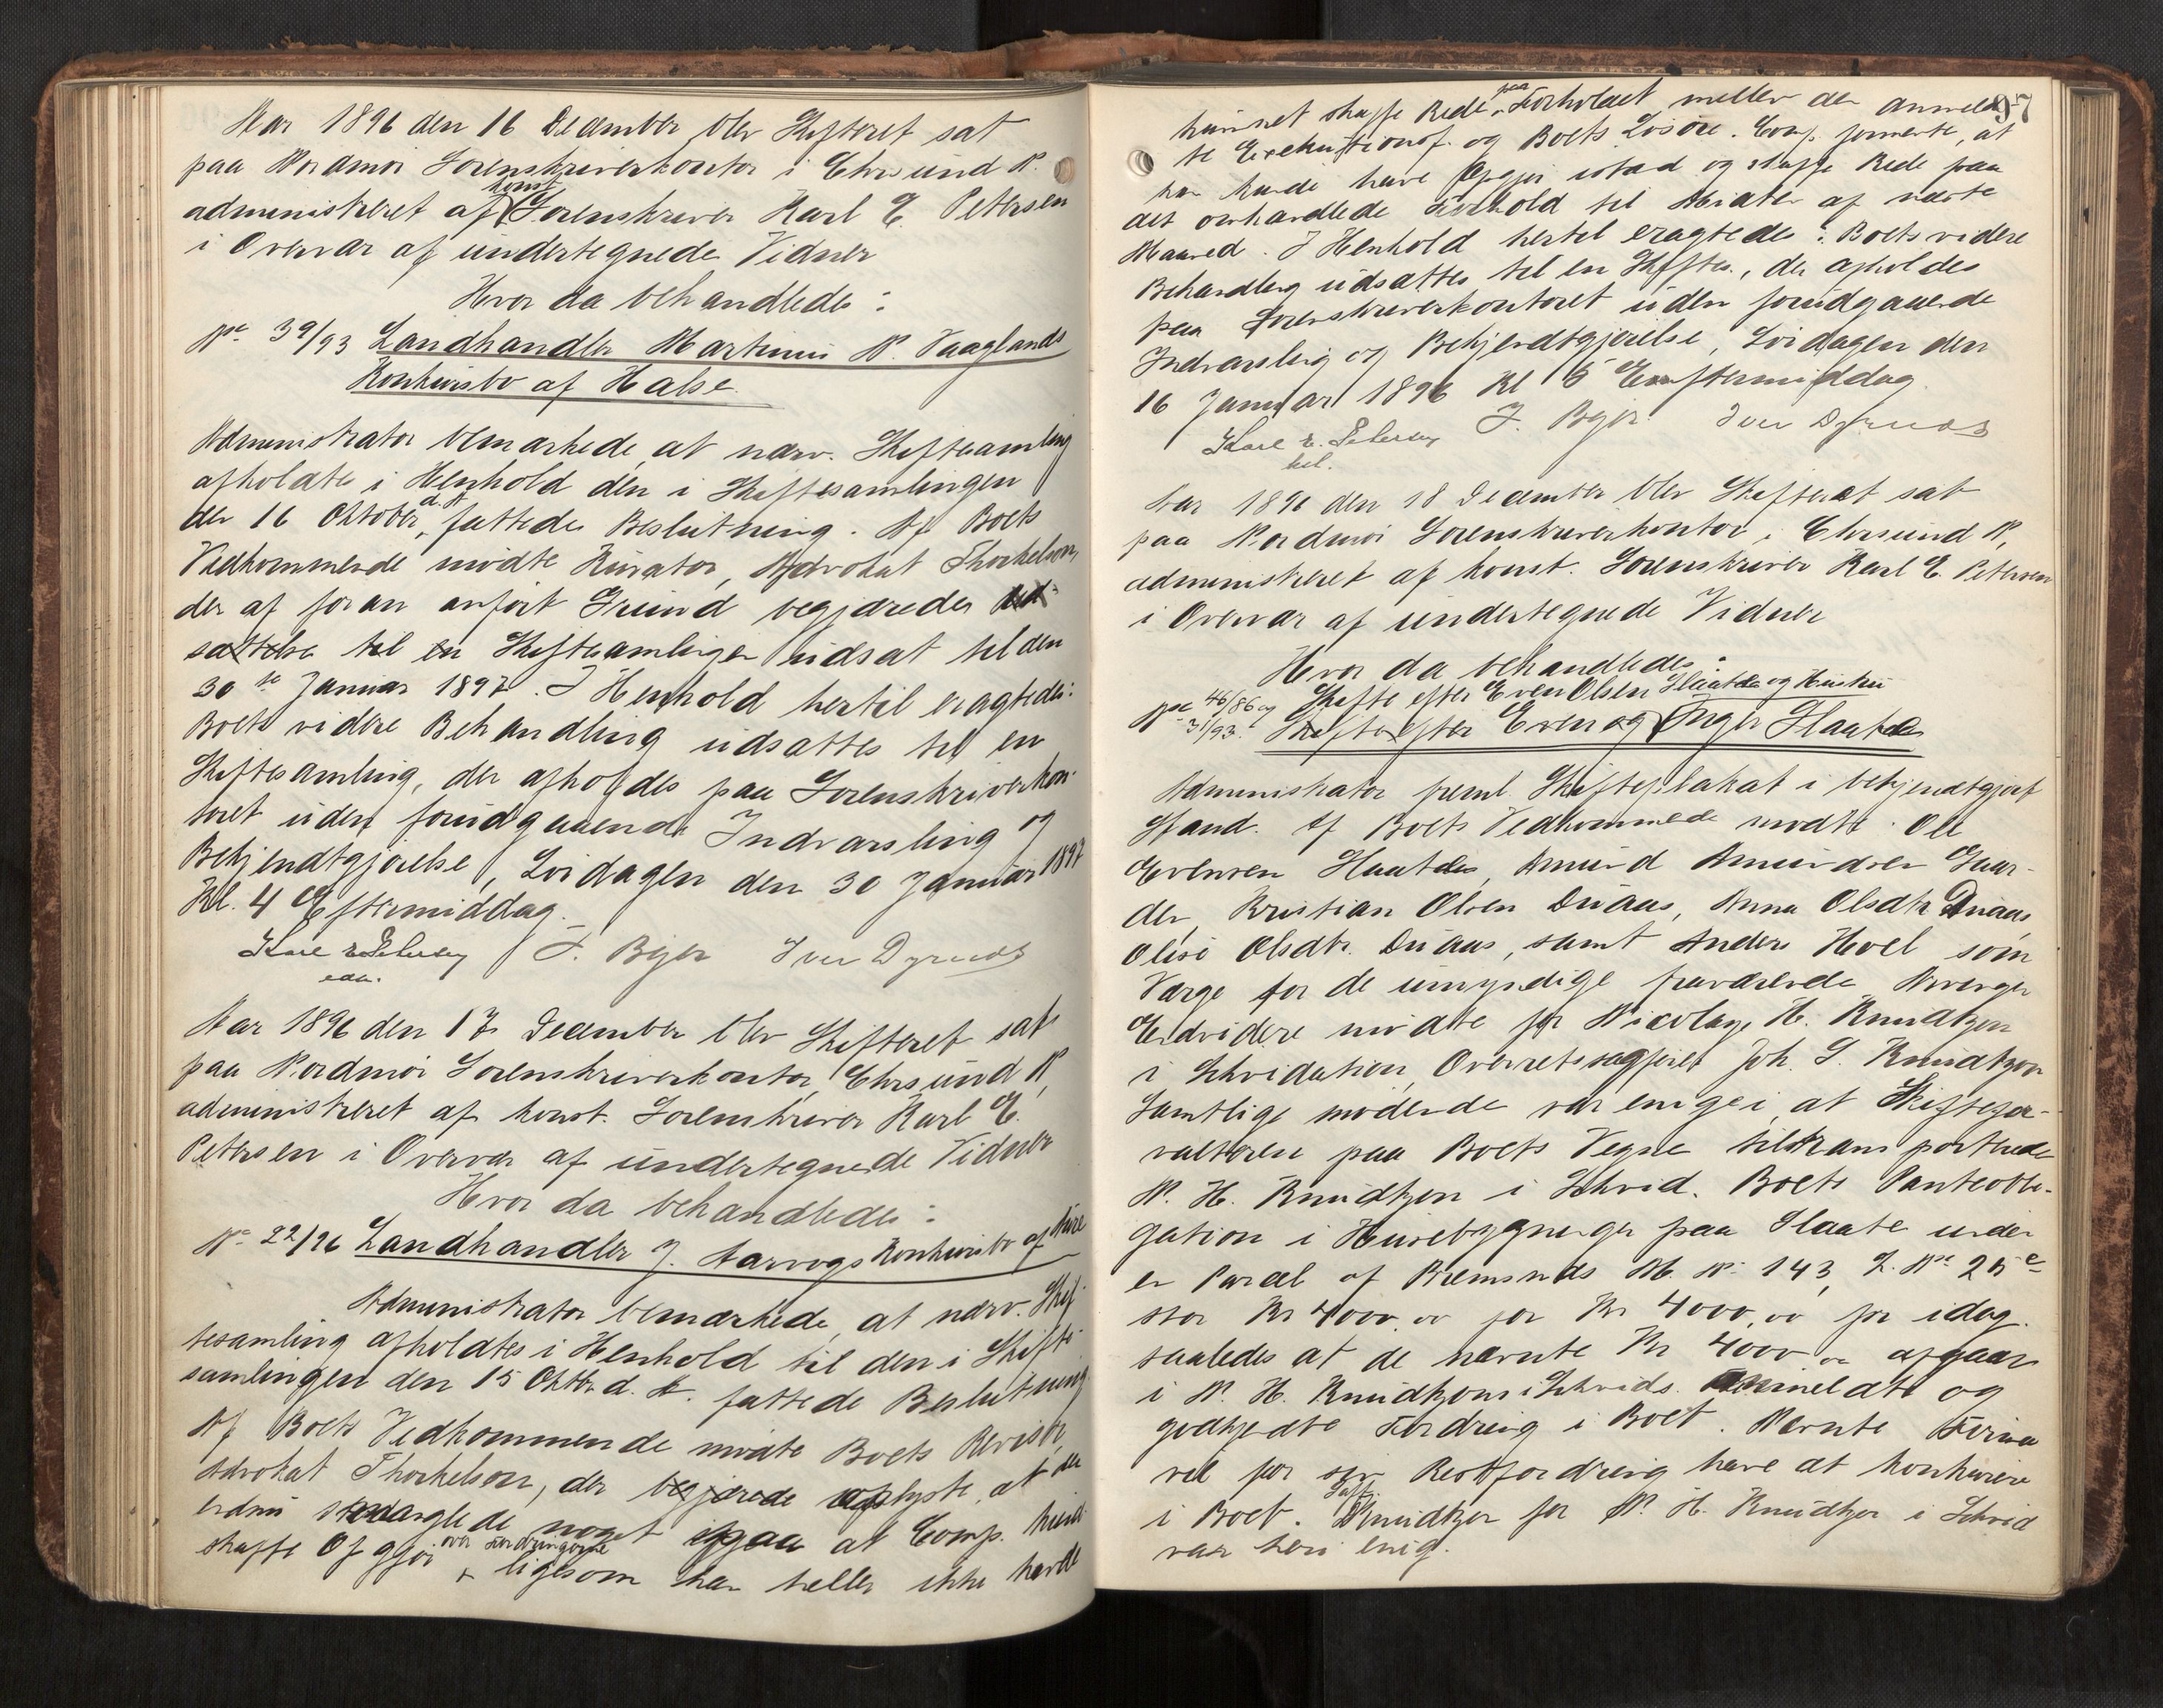 Aar 1896 den 16 December blev Skifteret sat
paa Nordmør Sorenskriverkontor i Chrsund N.
administreret af konst. Sorenskriver Karl E. Petersen
i Overvær af undertegnede Vidner
Hvor da behandledes:
No 39/93 Landhandler Martinus N. Vaaglands
Konkursbo af Halse.
Administrator bemærkede, at nærv. Skiftesamling
afholdtes i Henhold den i Skiftesamlingen
den 16 Oktober d. A. fattede Beslutning. Af Boets
Vedkommende mødte Kurator, Advokat Thorkelson,
der af foran anført Grund begjærede ud-
sættelse til en Skiftesamlingen udsat til den
30te Januar 1897. I Henhold hertil eragtedes:
Boets videre Behandling udsættes til en
Skiftesamling, der afholdes paa Sorenskriverkon-
toret uden forudgaaende Indvarsling og
Bekjendtgjørelse, Lørdagen den 30 Januar 1897
Kl. 4 Eftermiddag.
Karl E. Petersen J. Bjer Iver Dyrnes
Aar 1896 den 17 December blev Skifteret sat
paa Nordmør Sorenskriverkontor, Chrsund N,
administreret af konst. Sorenskriver Karl E.
Petersen i Overvær af undertegnede Vidner
Hvor da behandledes:
No 22/96 Landhandler J. Aarvogs Konkursbo af Aure
Administrator bemærkede, at nærv. Skif-
tesamling afholdtes i Henhold til den i Skifte-
samlingen den 15 Oktbr d. A. fattede Beslutning
Af Boets Vedkommende mødte Boets Revisor,
Advokat Thorkelson, der begjærede oplyste, at der
endnu manglede noget paa at Comp. kunde
skaffe Opgjør over Fordringerne ligesom han heller ikke havde
97
kunnet skaffe Rede paa Forholdet mellem den anmeld-
te Exekutionsf. og Boets Løsøre. Comp. formente, at
han kunde have Opgjør istand og skaffe Rede paa
det omhandlede Forhold til Midten af næste
Maaned. I Henhold hertil eragtedes: Boets videre
Behandling udsættes til en Skiftes., der afholdes
paa Sorenskriverkontoret uden forudgaaende
Indvarsling og Bekjendtgjørelse, Lørdagen den
16 Januar 1896 Kl 5 Eftermiddag.
Karl E. Petersen J. Bjer Iver Dyrnes
Aar 1896 den 18 December blev Skifteret sat
paa Nordmør Sorenskriverkontor, Chrsund N,
administreret af konst. Sorenskriver Karl E. Petersen
i Overvær af undertegnede Vidner
Hvor da behandledes:
No 46/86 og Skifte efter Even Olsen Slaatte og Hustru
31/93. Skifte efter Even og Inger Slaatte
Administrator freml. Skifteplakat i bekjendtgjort
Stand. Af Boets Vedkommende mødte: Ole
Evensen Slaatte, Amund Amundsen Gaar-
den, Kristian Olsen Duaas, Anna Olsdtr Duaas,
Olise Olsdtr. Duaas, samt Anders Hoel som
Værge for de umyndige fraværende Arvinger
Endvidere mødte for Nicolay H. Knudtzon
i Likvidation, Overretssagfører Joh. L. Knudtzon
Samtlige mødende var enige i, at Skiftefor-
valteren paa Boets Vegne tiltransporterede
N. H. Knudtzon i Likvid. Boets Panteobli-
gation i Husebygninger paa Slaatte under
en Parcel af Bremsnes M. No 143, L. No 25c
stor Kr 4000,00 for Kr 4000,00 pr idag.
saaledes at de nævnte Kr 4000,00 afgaar
i N. H. Knudtzons i Likvids. anmeldte og
godkjendte Fordring i Boet. Nævnte Firma
vil for sin Restfordring have at konkurere
i Boet. Sagf. Knudtzon for N. H. Knudtzon i Likvid
var heri enig.